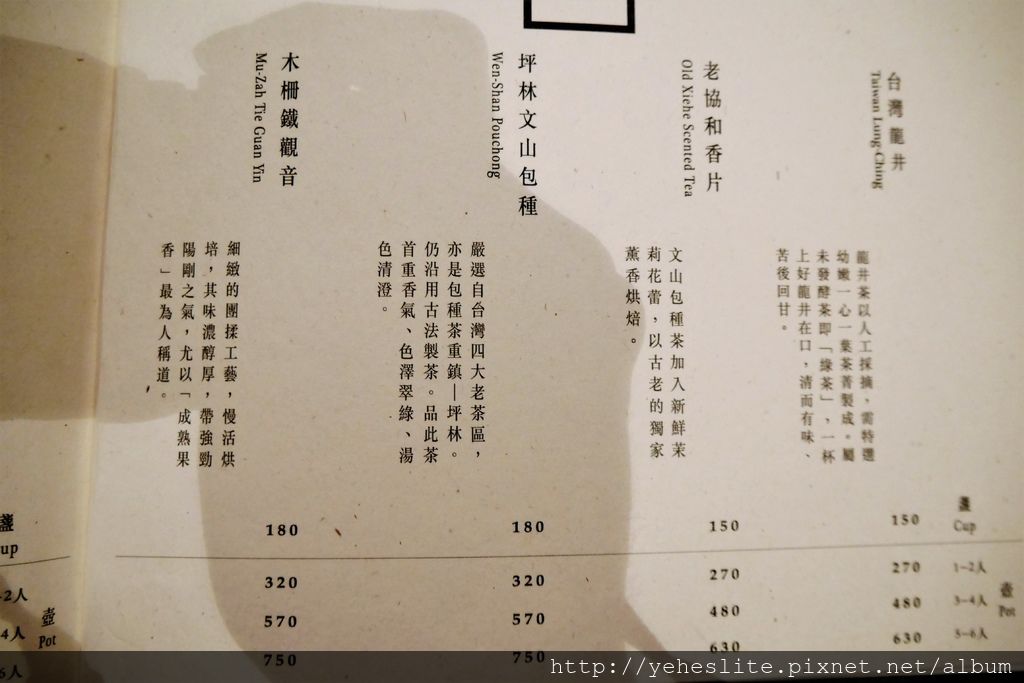 台灣龍井
Taiwan Lung-Ching
龍井茶以人工採摘，需特選
幼嫩一心一葉茶菁製成。屬
未發酵茶即「綠茶」，一杯
上好龍井在口，清而有味、
苦後回甘。
老協和香片
Old Xiehe Scented Tea
文山包種茶加入新鮮茉
莉花蕾，以古老的獨家
薰香烘焙。
坪林文山包種
Wen-Shan Pouchong
嚴選自台灣四大老茶區，
亦是包種茶重鎮—坪林。
仍沿用古法製茶。品此茶
首重香氣、色澤翠綠、湯
色清澄。
木柵鐵觀音
Mu-Zah Tie Guan Yin
細緻的團揉工藝，慢活烘
培，其味濃醇厚，帶強勁
陽剛之氣，尤以「成熟果
香」最為人稱道。
盞
Cup
150
150
180
180
1–2人
270
270
320
320
壺
Pot
3–4人
480
480
570
570
5–6人
630
630
750
750
盞
up
-2人
壺
Pot
-4人
6人
http://yeheslite.pixnet.net/album